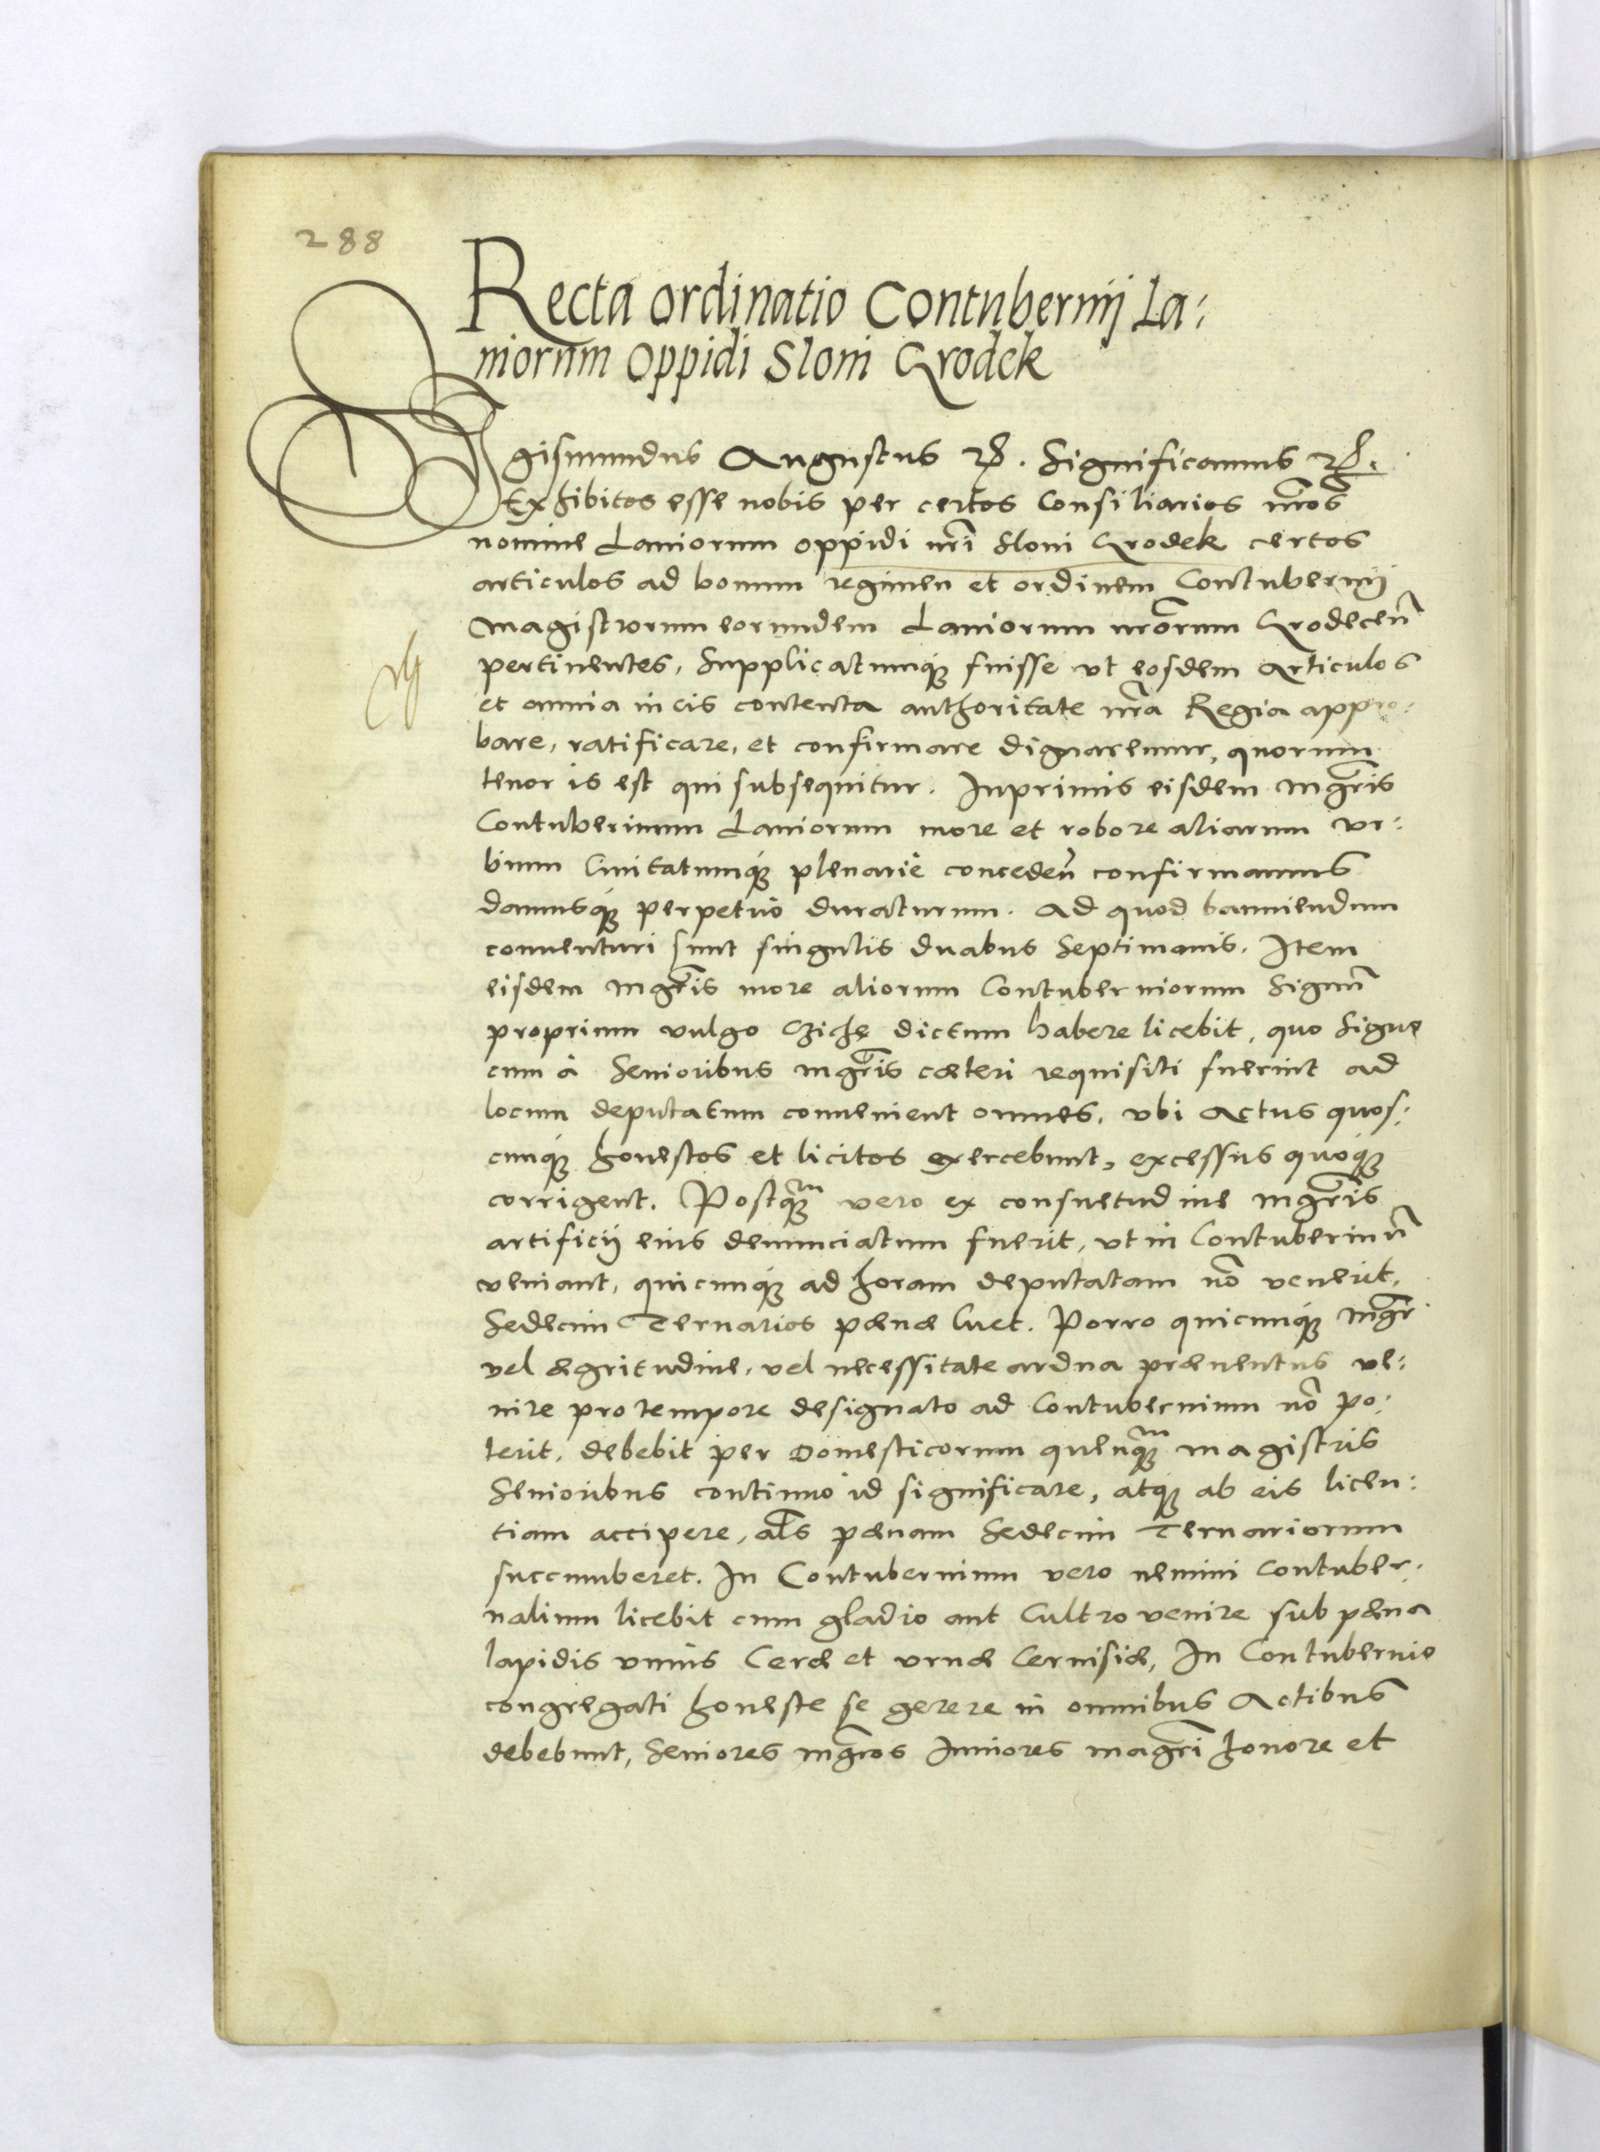 288
Recta ordinatio Contubernij La:
niorum Oppidi Sloni Grodek
Sigismundus Augustus &c. Significamus &c.
Exhibitos esse nobis per certos Consiliarios nr̃os
nomine Laniorum oppidi nr̃i Sloni Grodek certos
articulos ad bonum regimen et ordinem Contubernij
Magistrorum eorundem Laniorum nr̃orum Grodeceñ
pertinentes, Supplicatumq́ue fuisse vt eosdem Articulos
et omnia in eis contenta authoritate nr̃a Regia appro:
bare, ratificare, et confirmare dignaremur, quorum
tenor is est qui subsequitur. Inprimis eisdem mgr̃is
Contubernium Laniorum more et robore aliarum vr:
bium Ciuitatumq́ue plenariè conceden̄ confirmamus
damusq́ue perpetuò duraturum. Ad quod banniendum
conuenturi sunt singulis duabus Septimanis. Item
eisdem mgr̃is more aliorum Contuberniorum Signũ
proprium vulgo Czichę dictum habere licebit, quo Signo
cum à Senioribus mgr̃is cæteri requisiti fuerint ad
locum deputatum conuenient omnes, vbi Actus quos:
cunq́ue honestos et licitos exercebunt, excessus quoq́ue
corrigent. Postq̃ꝫ vero ex consuetudine mgr̃is
artificij eius denunciatum fuerit, vt in Contuberniũ
veniant, quicunq́ue ad horam deputatam nõ venerit,
Sedecim Ternarios pœnæ luet. Porro quicunq́ue mgr̃
vel ægritudine, vel necessitate ardua præuentus ve:
nire pro tempore designato ad Contubernium nõ po:
terit, debebit per Domesticorum quenq̃ꝫ magistris
Senioribus continuò id significare, atq́ue ab eis licen:
tiam accipere, al̃s pœnam Sedecim Ternariorum
succumberet. In Contubernium vero nemini Contuber:
nalium licebit cum gladio aut Cultro venire sub pœna
lapidis vnius Ceræ et vrnæ Ceruisiæ, In Contubernio
congregati honeste se gerere in omnibus Actibus
debebunt, Seniores mgr̃os Iuniores magr̃i honore et